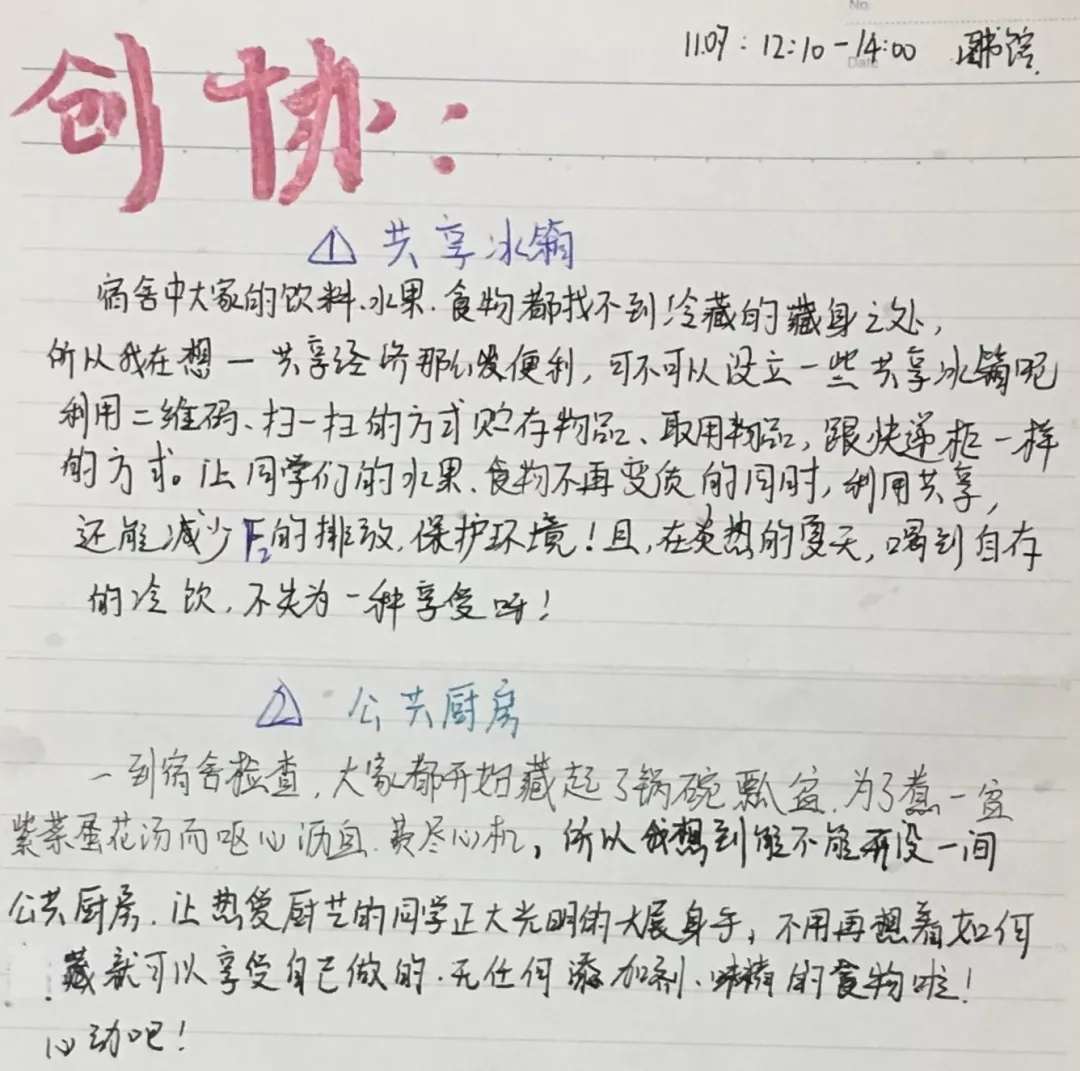 No.
Date
11.07：12:10-14:00 图书馆
创协：
① 共享冰箱
宿舍中大家的饮料、水果、食物都找不到冷藏的藏身之处，
所以我在想一共享经济那么发便利，可不可以设立一些共享冰箱呢
利用二维码、扫一扫的方式贮存物品、取用物品，跟快递柜一样
的方式。让同学们的水果、食物不再变质的同时，利用共享，
还能减少F₂的排放，保护环境！且，在炎热的夏天，喝到自存
的冷饮，不失为一种享受呀！
② 公共厨房
一到宿舍检查，大家都开始藏起了锅碗瓢盆，为了煮一盆
紫菜蛋花汤而呕心沥血、费尽心机，所以我想到能不能开设一间
公共厨房，让热爱厨艺的同学正大光明的大展身手，不用再想着如何
藏就可以享受自己做的、无任何添加剂、味精的食物啦！
心动吧！